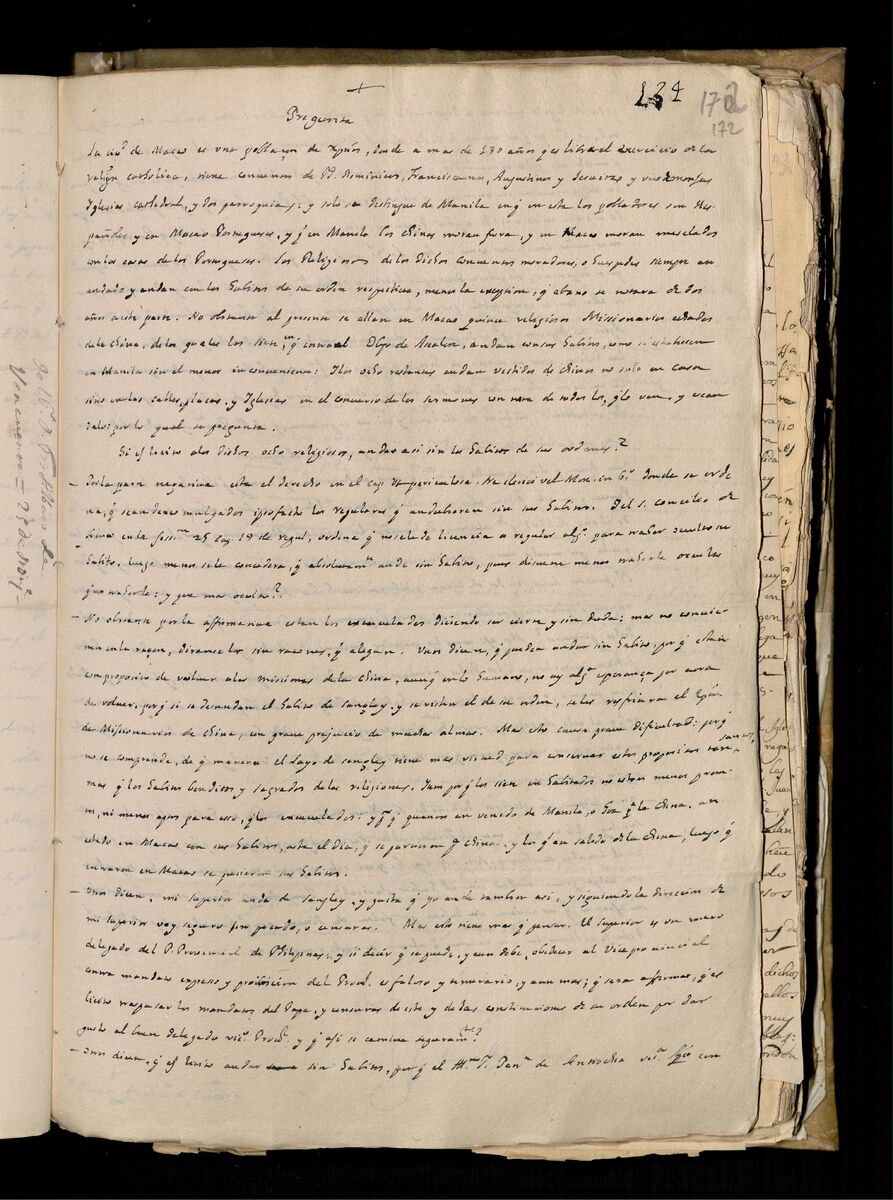 +
134
172
172
Pregunta
La ciu.d de Macao es una poblaçon de xpnos, donde a mas de 130 años q es libre el exercicio de la
relign catholica, tiene conuentos de PP. Dominicos, Franciscanos, Augustinos y Jesuitas y
Iglesias cathedral, y dos parroquias: y solo se distingue de Manila en q en esta los pobladores son Es
pañoles y en Macao Portugueses, y q en Manila los chinos moran fuera, y en Macao moran mesclados
con las casas de los Portugueses. Los Religiosos de los dichos conuentos moradores, o huespedes siempre an
andado y andan con los habitos de su orden respectiue, menos la excepcion, q abaxo se notara de dos
años a esta parte. No obstante al presente se allan en Macao quince religiosos Missionarios echados
de la China, de los quales los siete, en q entra el Obpo de Ascalon, andan con sus habitos, como si estubiessen
en Manila sin el menor inconueniente: I los ocho restantes andan vestidos de chinos no solo en casa
sino en las calles, plaças, y Iglesias en el concurso de los sermones con nota de todos los, q lo ven, y escan
dalo: por lo qual se pregunta.
Si es licito a los dichos ocho religiosos, andar asi sin los habitos de sus ordenes?
- Por la parte negatiua esta el derecho en el cap. Ut periculosa. Ne clerici vel Mon. in 6.o donde se orde
na, q sean descomulgados ipso facto los regulares q andubieren sin sus habitos. Del s. concilio de
Trento en la sess.on 25 cap. 19 de regul, ordena q no se le de licencia a regular alg.o para traher oculto su
habito. luego menos se le concedera, q absolutam.te ande sin habito, pues disuena menos traherle oculto
q no traherle: y que mas oculto?.
- No obstante por la affirmatiua estan los exceptados diciendo ser cierta y sin duda; mas no conuin
cen las raçones, q alegan. Unos dicen, q pueden andar sin habito, por q estan
con proposito de voluer a las missiones de la China, aunq en lo humano, no ay alg.a esperança por aora
de voluer, por q si se desnudan el habito de sangley, y se visten el de su orden, se les resfriara el
de Missionarios de China, con graue prejuicio de muchas almas. Mas esto causa graue dificultad: por q
no se comprende, de q manera el sayo de sangley tiene mas virtud para conseruar estos propositos tan santos,
mas q los habitos benditos y sagrados de las religiones. Item por q los siete en habitados no estan menos prom
tos, ni menos aptos para esso, q los exceptados: y q quantos an venido de Manila, o Goa p.a la China, an
estado en Macao con sus habitos, asta el dia, q se partieron p.a China, y los q an salido de la China, luego q
entraron en Macao se pusieron sus habitos.
- Otros dicen, mi superior anda de sangley, y gusta q yo ande tambien asi, y siguiendo la direccion de
mi superior voy seguro sin pecado, o censuras. Mas esto tiene mas q pensar. El superior es un mero
delegado del P. Prouincial de Philipinas; y si decir q se puede, y aun debe, obedecer al Viceprouincial
contra mandato expreso y prohibicion del Prou.l es falso y temerario, y aun mas; q sera affirmar, q es
licito traspasar los mandatos del Papa, y censuras de este y de las constituciones de su orden por dar
gusto al buen delegado vic.o Prou.l y q asi se camina seguram.te?
- Otros dicen, q es licito andar sin habitos, por q el Ill.mo S. Patr.a de Antiochia